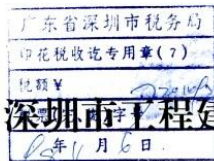 广东省深圳市税务局
印花税收讫专用章(7)
税额￥
深圳市工程建
年11月6日